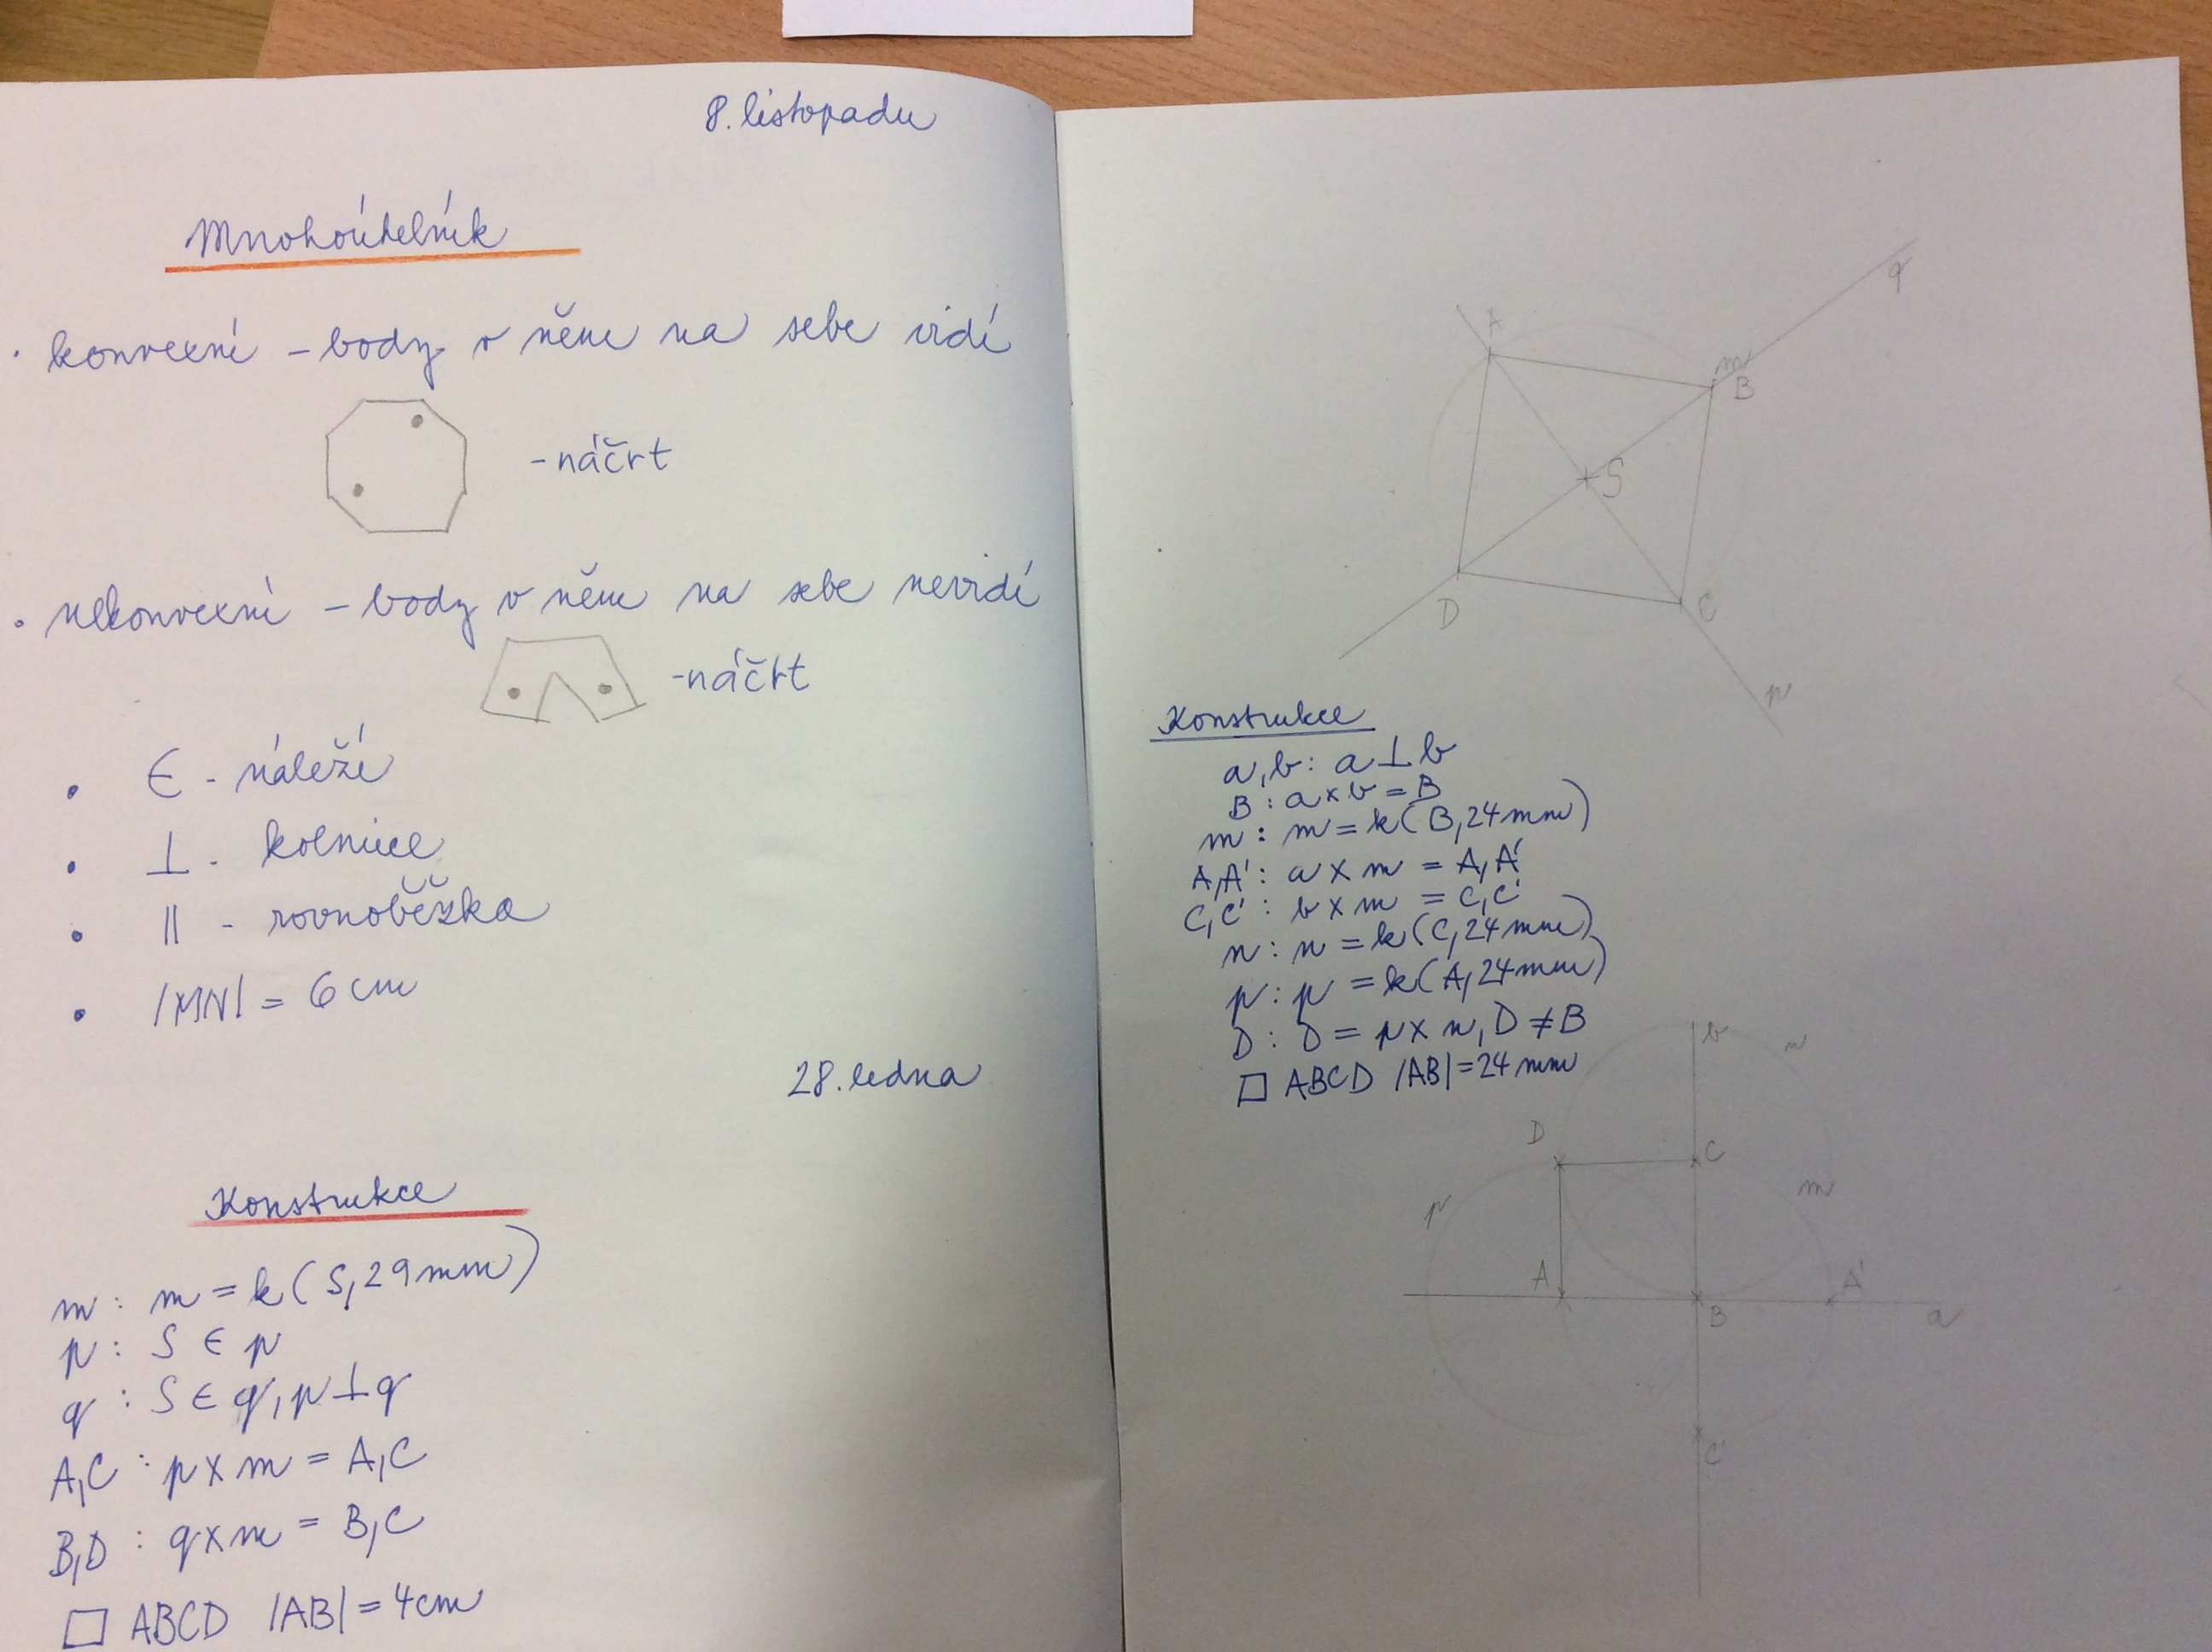 8. listopadu
Mnohoúhelník
· konvexní - body v něm na sebe vidí
- náčrt
· nekonvexní - body v něm na sebe nevidí
- náčrt
• ∈ - náleží
• ⊥ - kolmice
• || - rovnoběžka
• |MN| = 6 cm
28. ledna
Konstrukce
m : m = k ( S, 29 mm )
p : S ∈ p
q : S ∈ q, p ⊥ q
A, C : p x m = A, C
B, D : q x m = B, C
□ ABCD |AB| = 4 cm
q
A
m
B
S
D
C
p
Konstrukce
a, b : a ⊥ b
B : a x b = B
m : m = k ( B, 24 mm )
A, A' : a x m = A, A'
C, C' : b x m = C, C'
n : n = k ( C, 24 mm )
p : p = k ( A, 24 mm )
D : D = p x n, D ≠ B
□ ABCD |AB| = 24 mm
b
n
D
C
m
p
A
A'
B
a
C'